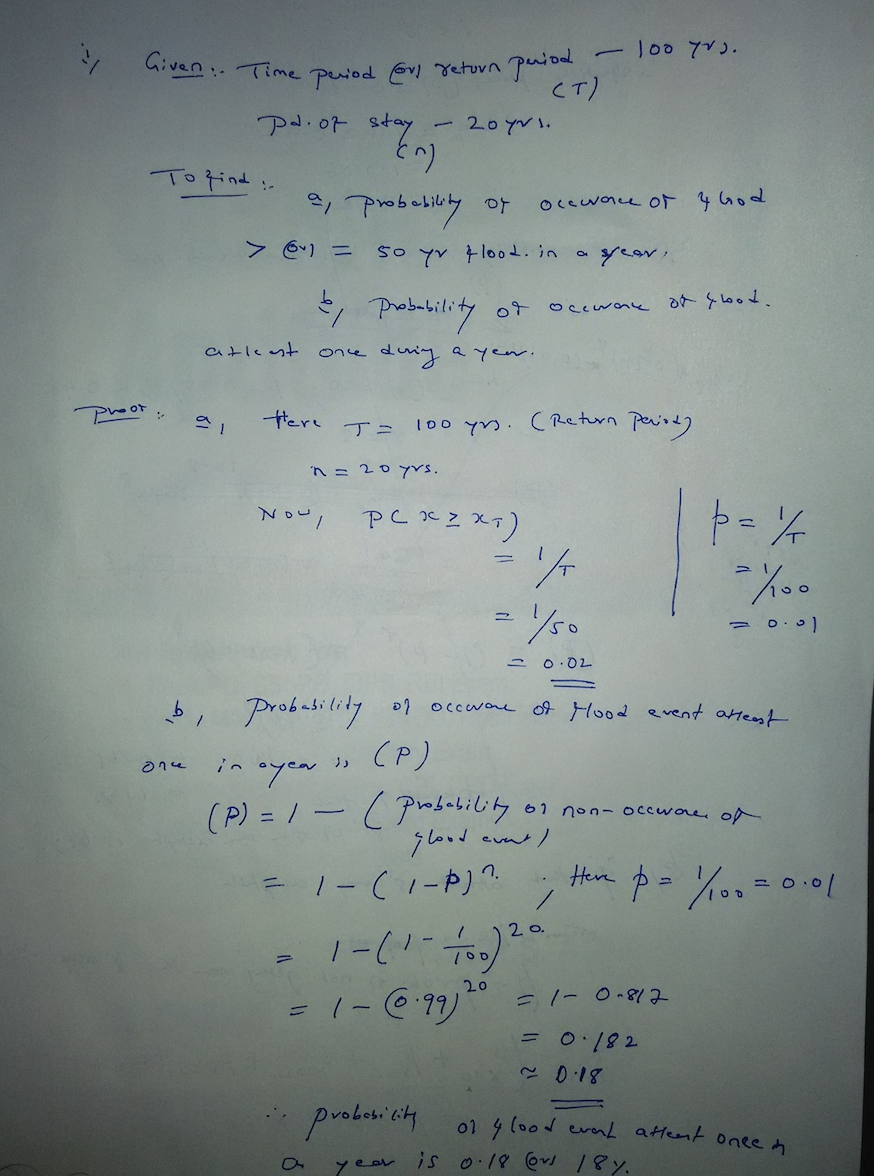 1, Given :- Time period (or) return period — 100 yrs.
(T)
Pd. of stay — 20 yrs.
(n)
To find :-
a, probability of occurance of flood
> (or) = 50 yr flood. in a year.
b, Probability of occurance of flood.
atleast once during a year.
Proof :- a, Here T = 100 yrs. (Return Period)
n = 20 yrs.
Now, P( x ≥ xT)
= 1/T
= 1/50
= 0.02
p = 1/T
= 1/100
= 0.01
b, Probability of occurance of flood event atleast
once in a year is (P)
(P) = 1 — ( Probability of non-occurance of
flood event)
= 1 - ( 1-p)^n. , Here p = 1/100 = 0.01
= 1-(1- 1/100)^20.
= 1- (0.99)^20 = 1- 0.817
= 0.182
≈ 0.18
∴ probability of flood event atleast once in
a year is 0.18 (or) 18%.